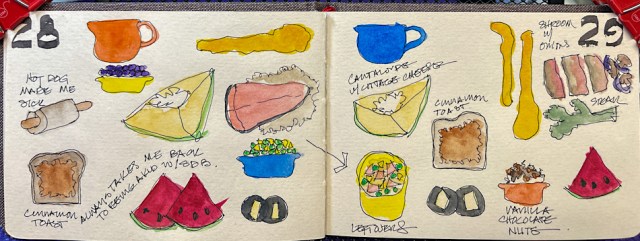 28
HOT DOG
MADE ME
SICK
CINNAMON
TOAST
ALWAYS TAKES ME BACK
TO BEING A KID W/
CANTALOUPE
W/ COTTAGE CHEESE
CINNAMON
TOAST
SHROOM
W/
ONIONS
29
STEAK
LEFTOVERS
VANILLA
CHOCOLATE
NUTS